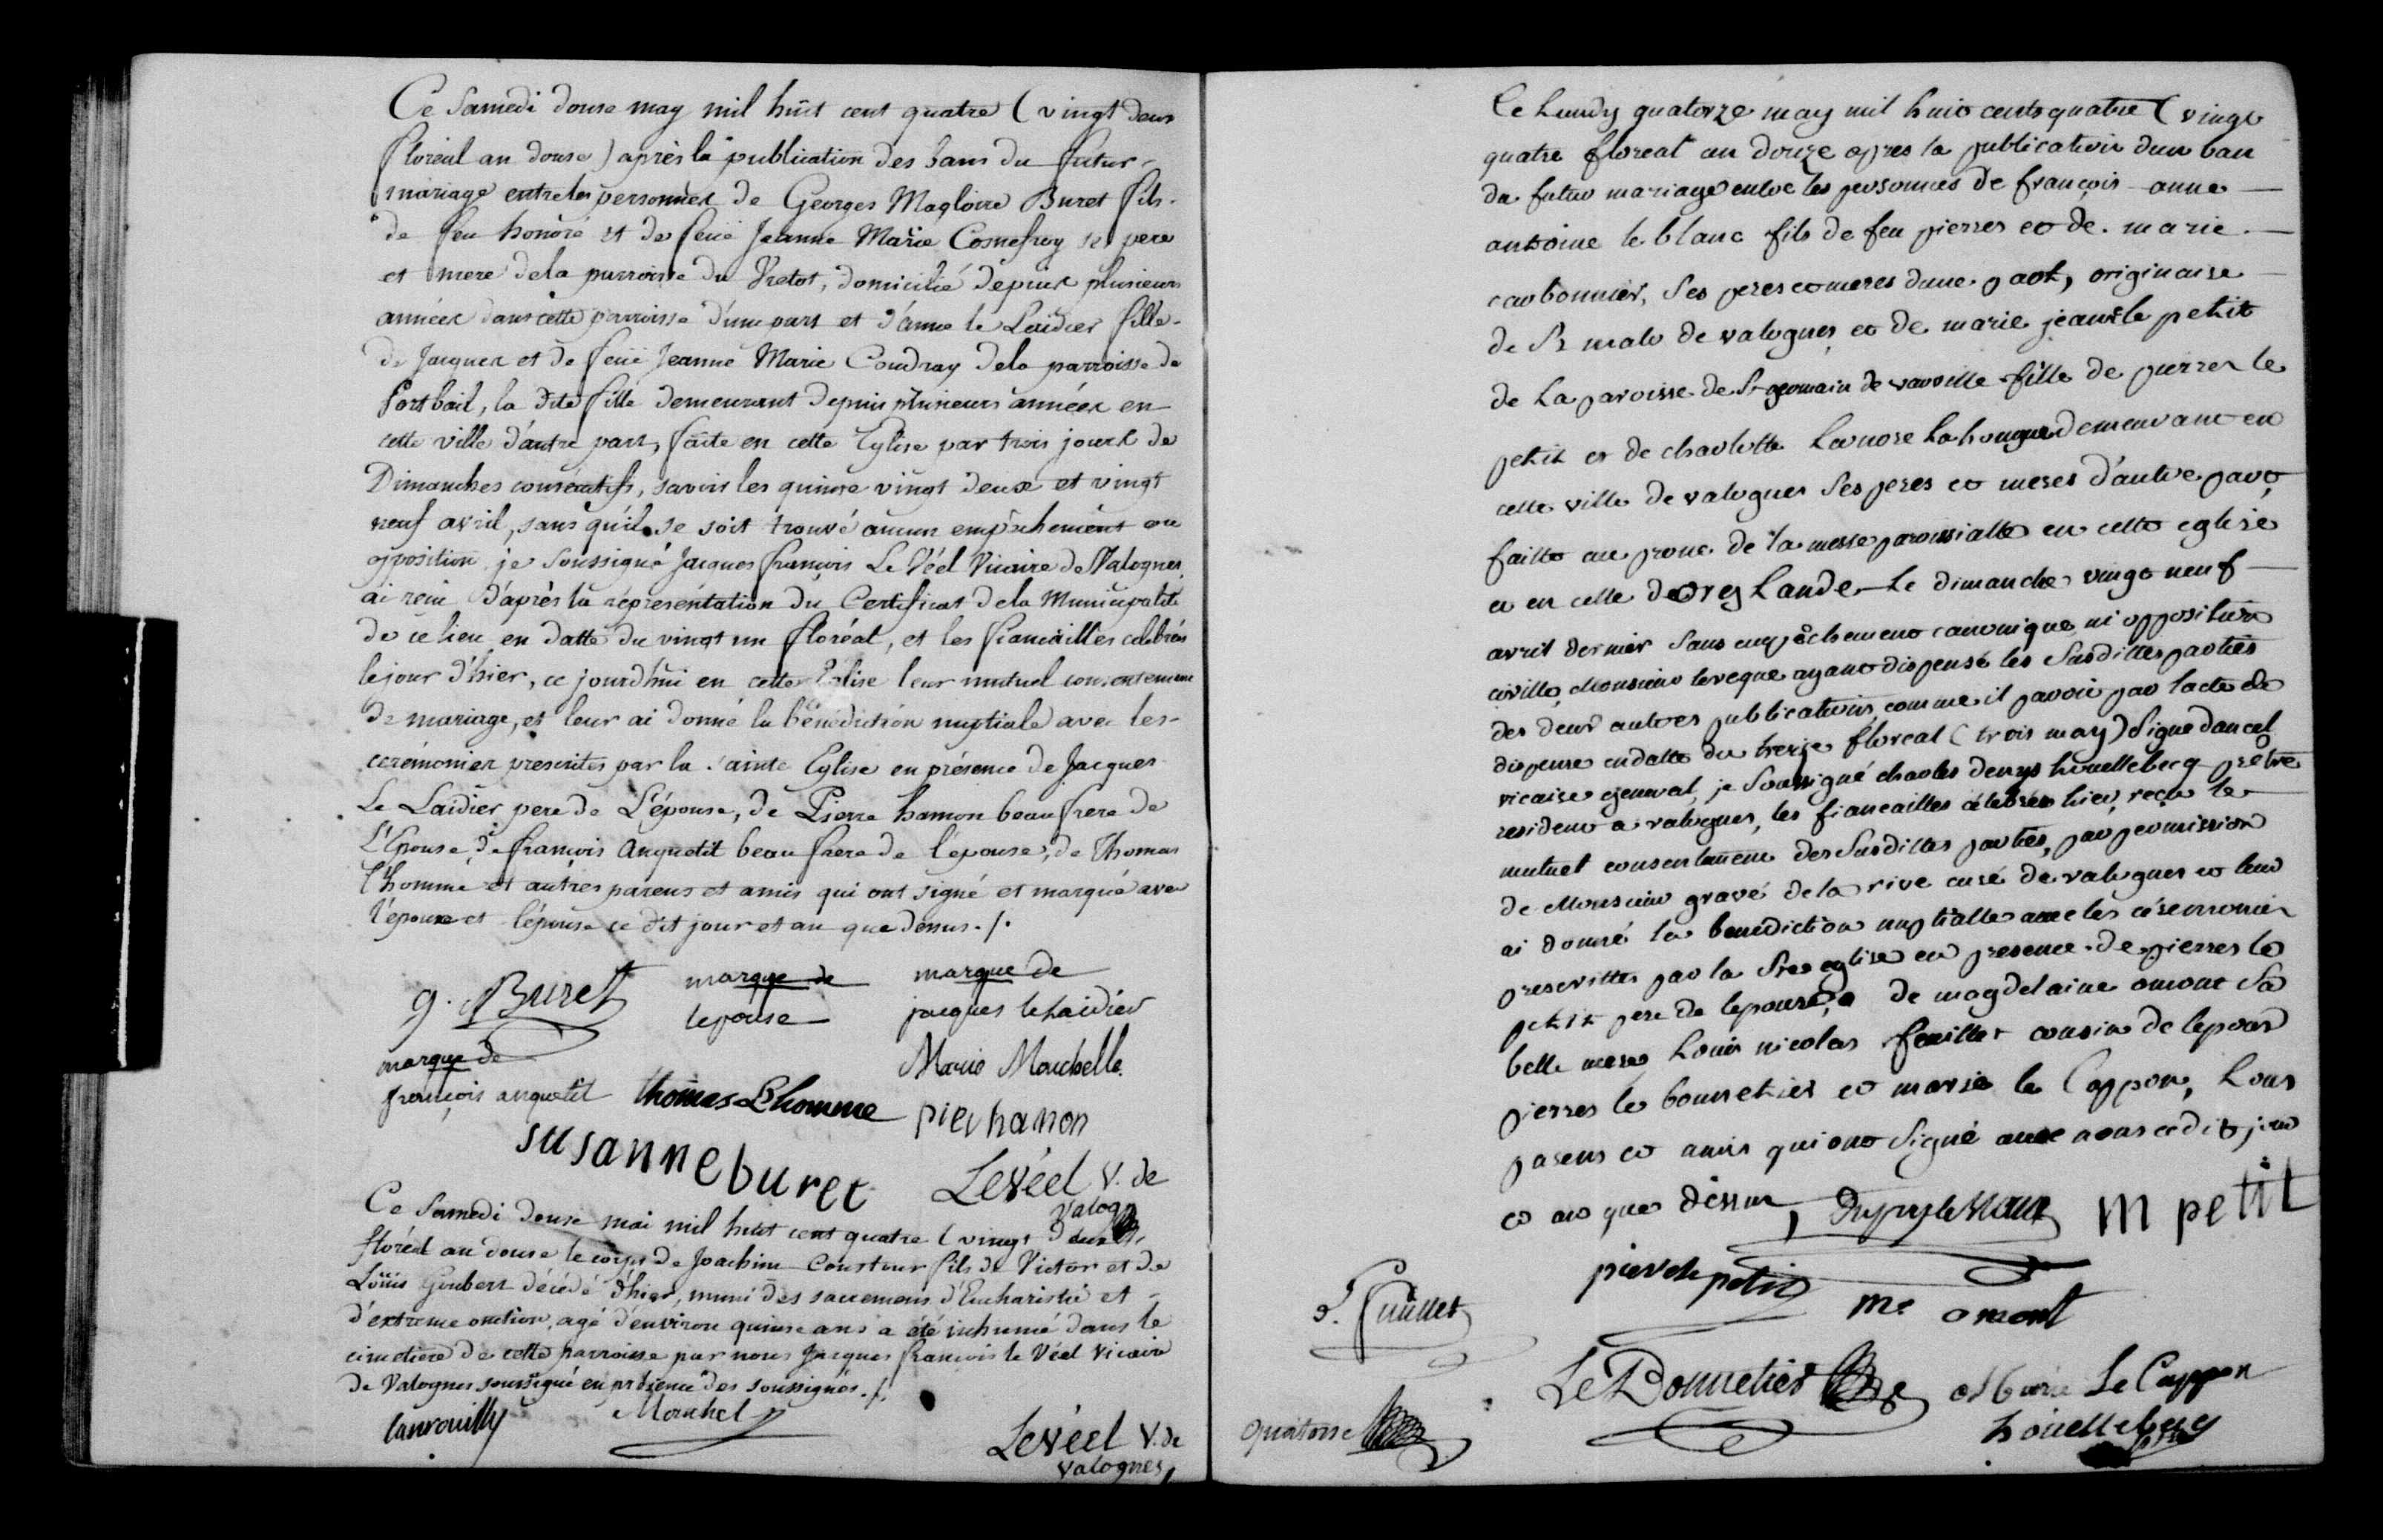 Ce Samedi douse may mil huit cent quatre (vingt deux
floréal an douse) après la publication des bans du futur
mariage entre les personnes de Georges Magloire Buret fils
de feu honoré et de feüe Jeanne Marie Cosnefroy ses pere
et mere de la parroisse du Pretot, domicilié depuis plusieurs
années dans cette parroisse d'une part et d'anne le Laidier fille
de Jacques et de feüe Jeanne Marie Coudray de la parroisse de
Portbail, la dite fille demeurant depuis plusieurs années en
cette ville d'autre part, faite en cette Eglise par trois jours de
Dimanches consécutifs, savoir les quinse vingt deux et vingt
neuf avril, sans qu'il se soit trouvé aucun empêchement ou
opposition je soussigné Jacques françois Le Véel Vicaire de Valognes
ai reçu d'après la représentation du Certificat de la Municipalité
de ce lieu en datte du vingt un floréal, et les fiancailles célébrées
le jour d'hier, ce jourd'hui en cette Eglise leur mutuel consentement
de mariage, et leur ai donné la bénédiction nuptiale avec les
cerémonies prescrites par la sainte Eglise en présence de Jacques
Le Laidier pere de L'épouse, de Pierre hamon beau frere de
L'Epouse, de françois Anquetil beau frere de l'épouse, de Thomas
l'homme et autres parens et amis qui ont signé et marqué avec
l'époux et l'épouse ce dit jour et an que dessus ./.
g. Buret marque de marque de
lepouse jacques le laidier
marque de Marie Mouchelle
françois anquetil thomas Lhomme pier hamon
susanne buret Leveel V. de
Valognes
Ce Samedi douse mai mil huit cent quatre (vingt deux
floréal an douse le corps de Joachim Cousteur fils de Victor et de
Loüis Goubert décédé d'hier, muni des sacremens d'Eucharistie et
d'extreme onction, agé d'environ quinse ans a été inhumé dans le
cimetiere de cette parroisse par nous Jacques françois le Véel Vicaire
de Valognes soussigné en présence des soussignés ./.
Lanrouilly Mouchel
Leveel V. de
Valognes
Ce Lundy quatorze may mil huit cents quatre (vingt
quatre floreal an douze apres la publication dun ban
du futur mariage entre les personnes de françois anne
antoine le blanc fils de feu pierres et de marie
carbonnier, Ses peres et meres dune part, originaire
de St malo de valognes et de marie jeanne le petit
de La paroisse de St germain de varreville fille de pierres le
petit et de charlotte Leonore La hougue demeurant en
cette ville de valognes Ses peres et meres d'autre part
faitte au prone de la messe paroissialle en cette eglise
et en celle dorglande Le dimanche vingt neuf
avril dernier Sans empêchement canonique ni opposition
civille, Monsieur leveque ayant dispensé les Susdittes parties
des deux autres publications, comme il paroit par lacte de
dispense en datte du treize floreal (trois may) Signe dancel
vicaire general, je Soussigné charles denys houellebecq prêtre
resident a valognes, les fiancailles célebrées hier, reçu le
mutuel consentement des Susdittes parties, par permission
de Monsieur gravé de la rive curé de valognes et leur
ai donné la benediction nuptialle avec les céremonies
prescrittes par la Ste eglise en presence de pierres le
petit pere de lepouse, de magdelaine omont Sa
belle mere, Louis nicolas feuillet cousin de lepoux
pierres le bonnetier et marie le Cappon, tous
parens et amis qui ont Signé avec nous cedit jour
et an que dessus, m petit
L. feuillet pierre le petit me omont
Le Bonnetier Marie Le Cappon
quatorse houellebecq